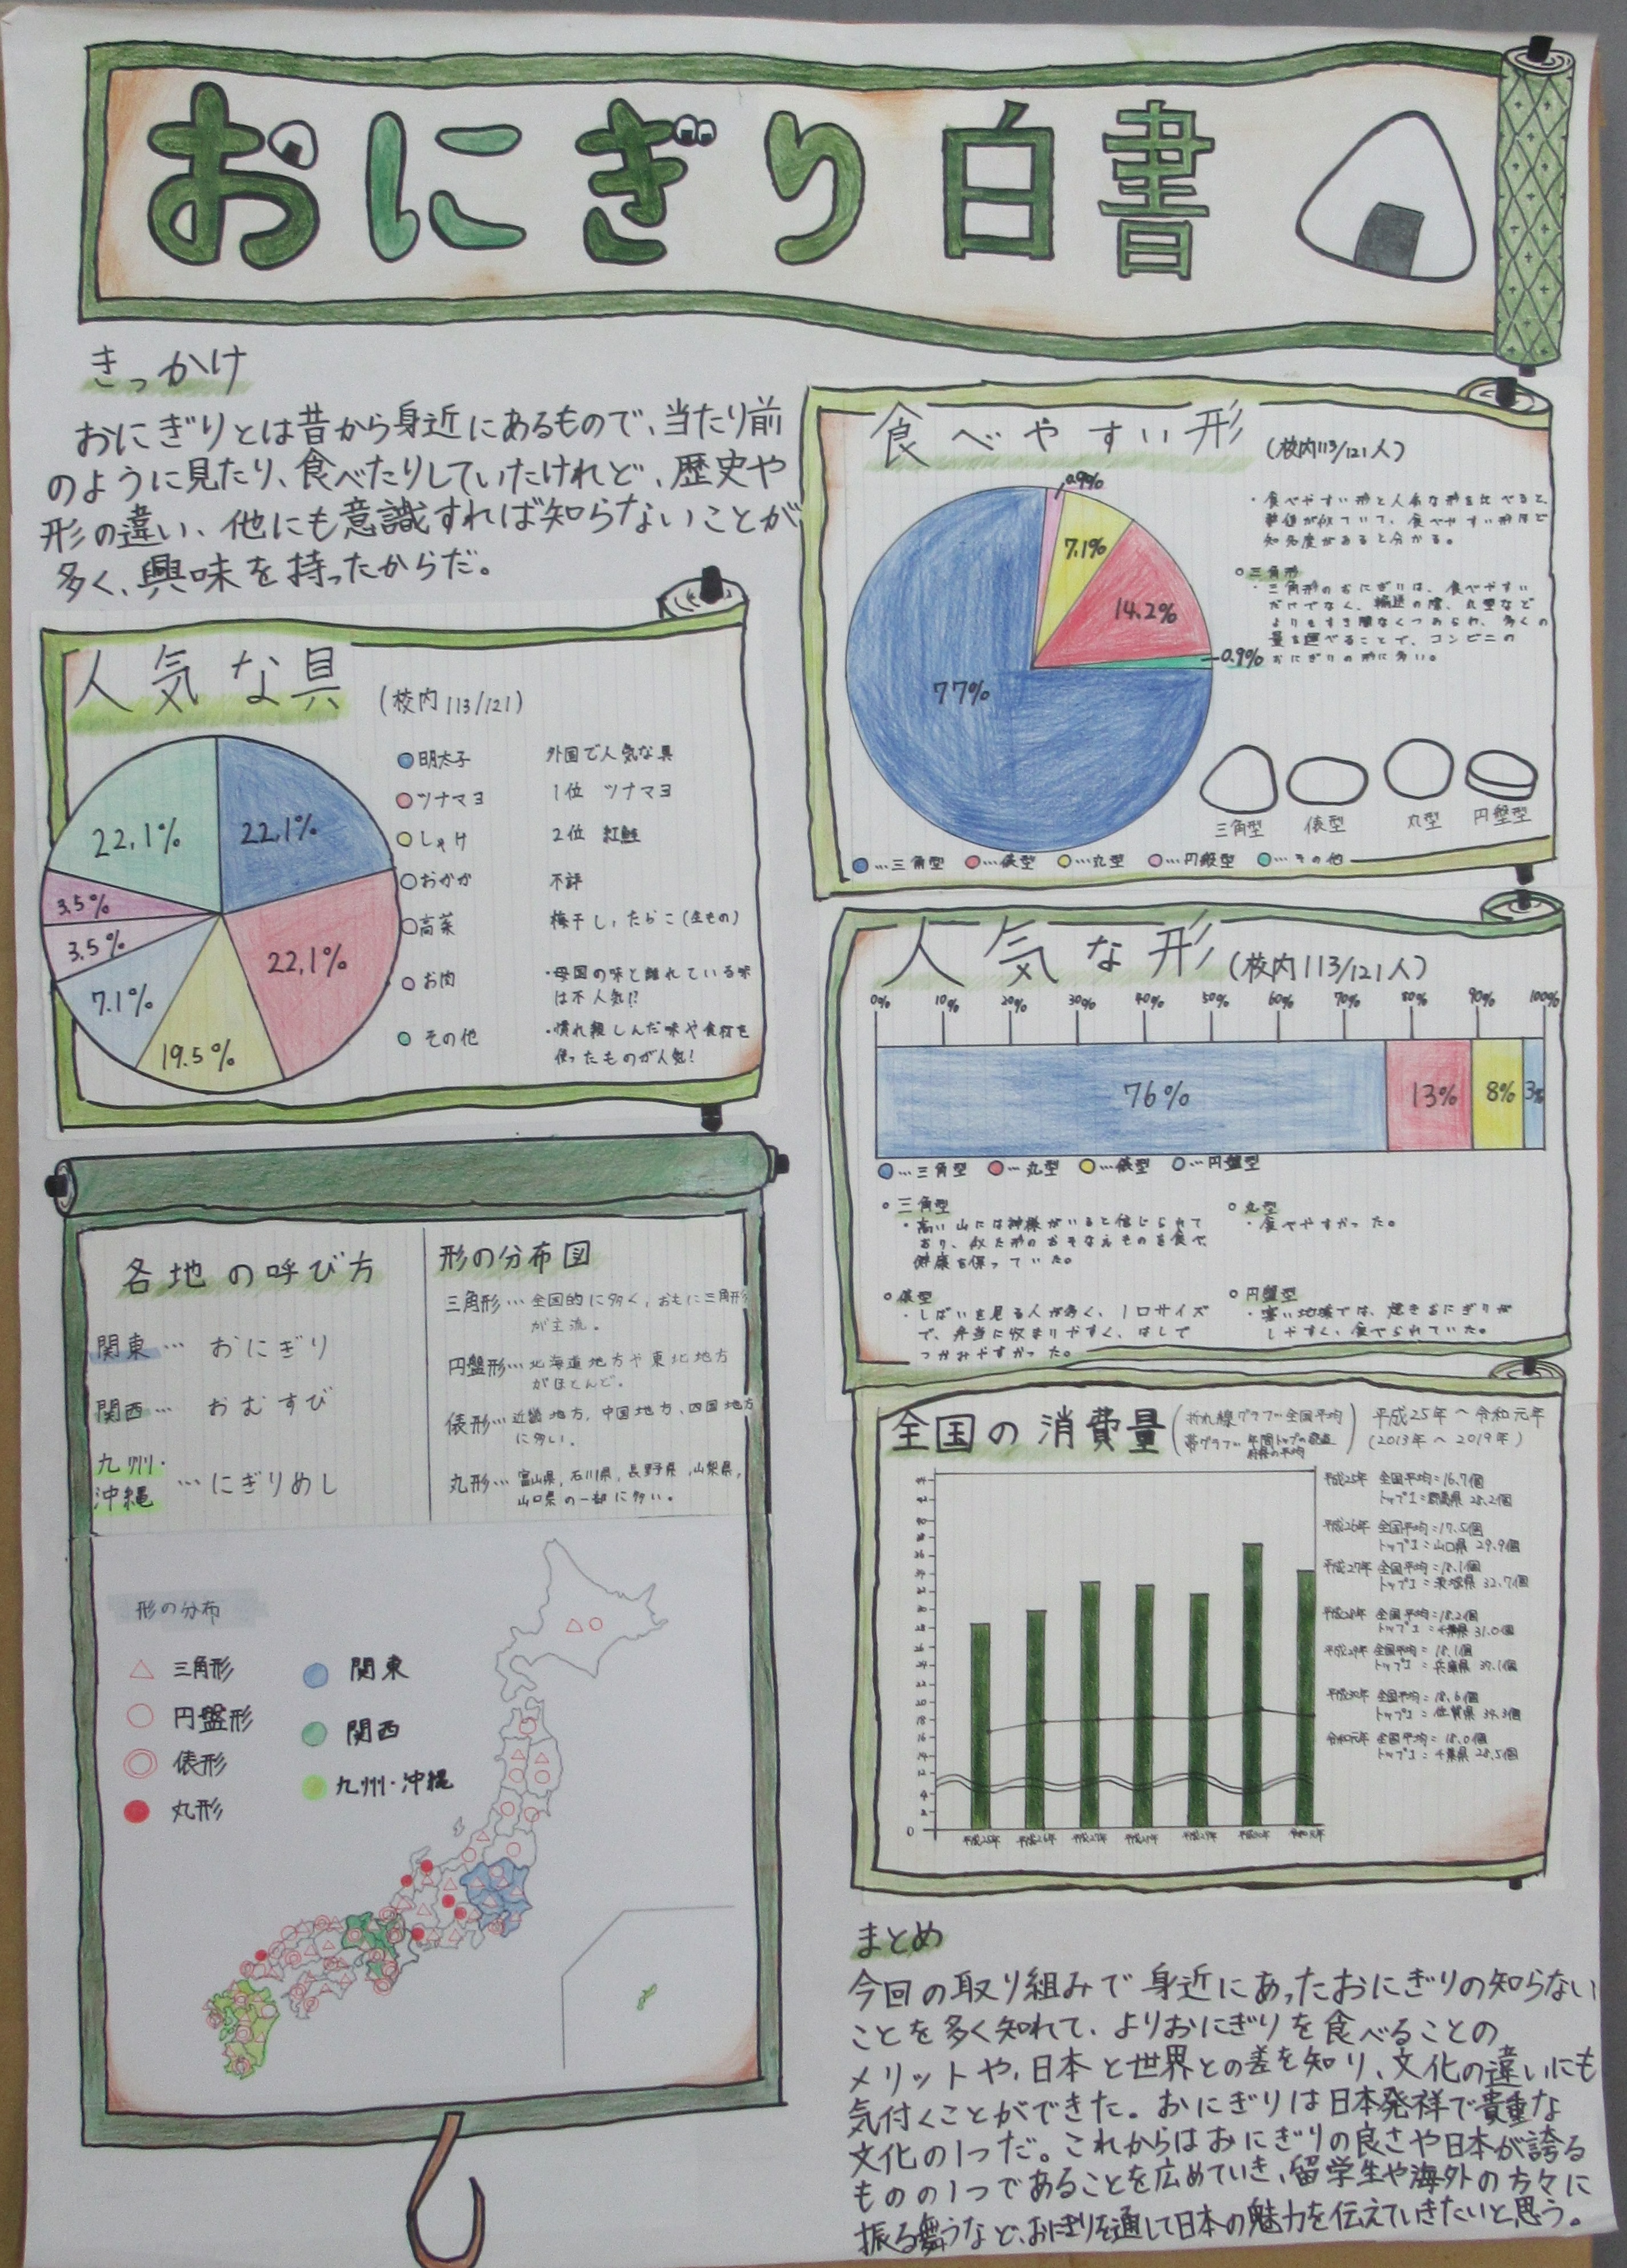 おにぎり白書
きっかけ
おにぎりとは昔から身近にあるもので、当たり前
のように見たり、食べたりしていたけれど、歴史や
形の違い、他にも意識すれば知らないことが
多く、興味を持ったからだ。
人気な具 (校内113/121)
22.1%
22.1%
22.1%
19.5%
7.1%
3.5%
3.5%
明太子
ツナマヨ
しゃけ
おかか
高菜
お肉
その他
外国で人気な具
1位 ツナマヨ
2位 紅鮭
不評
梅干し,たらこ(生もの)
・母国の味と離れている味
は不人気!?
・慣れ親しんだ味や食材を
使ったものが人気!
各地の呼び方
関東…おにぎり
関西…おむすび
九州・
沖縄…にぎりめし
形の分布図
三角形…全国的に多く,おもに三角形
が主流。
円盤形…北海道地方や東北地方
がほとんど。
俵形…近畿地方,中国地方,四国地方
に多い。
丸形…富山県,石川県,長野県,山梨県,
山口県の一部に多い。
形の分布
三角形
円盤形
俵形
丸形
関東
関西
九州・沖縄
食べやすい形 (校内113/121人)
0.9%
7.1%
14.2%
0.9%
77%
・食べやすい形と人気な形を比べると、
数値が似ていて、食べやすい形ほど
知名度があると分かる。
三角形
・三角形のおにぎりは、食べやすい
だけでなく、輸送の際、丸型など
よりもすき間なくつめられ、多くの
量を運べることで、コンビニの
おにぎりの形に多い。
三角型 俵型 丸型 円盤型
…三角型 …俵型 …丸型 …円盤型 …その他
人気な形 (校内113/121人)
0% 10% 20% 30% 40% 50% 60% 70% 80% 90% 100%
76% 13% 8% 3%
…三角型 …丸型 …俵型 …円盤型
三角型
・高い山には神様がいると信じられて
おり、似た形のおそなえものを食べ、
健康を保っていた。
丸型
・食べやすかった。
俵型
・しばいを見る人が多く、1口サイズ
で、弁当に収まりやすく、はしで
つかみやすかった。
円盤型
・寒い地域では、焼きおにぎりが
しやすく、食べられていた。
全国の消費量
折れ線グラフ…全国平均
帯グラフ…年間トップの都道
府県の平均
平成25年～令和元年
(2013年～2019年)
平成25年 全国平均=16.7個
トップ1=群馬県 28.2個
平成26年 全国平均=17.5個
トップ1=山口県 29.9個
平成27年 全国平均=18.1個
トップ1=茨城県 32.7個
平成28年 全国平均=18.2個
トップ1=千葉県 31.0個
平成29年 全国平均=18.1個
トップ1=兵庫県 37.1個
平成30年 全国平均=18.6個
トップ1=佐賀県 34.3個
令和元年 全国平均=18.0個
トップ1=千葉県 28.5個
まとめ
今回の取り組みで身近にあったおにぎりの知らない
ことを多く知れて、よりおにぎりを食べることの
メリットや,日本と世界との差を知り、文化の違いにも
気付くことができた。おにぎりは日本発祥で貴重な
文化の1つだ。これからはおにぎりの良さや日本が誇る
ものの1つであることを広めていき、留学生や海外の方々に
振る舞うなど、おにぎりを通して日本の魅力を伝えていきたいと思う。